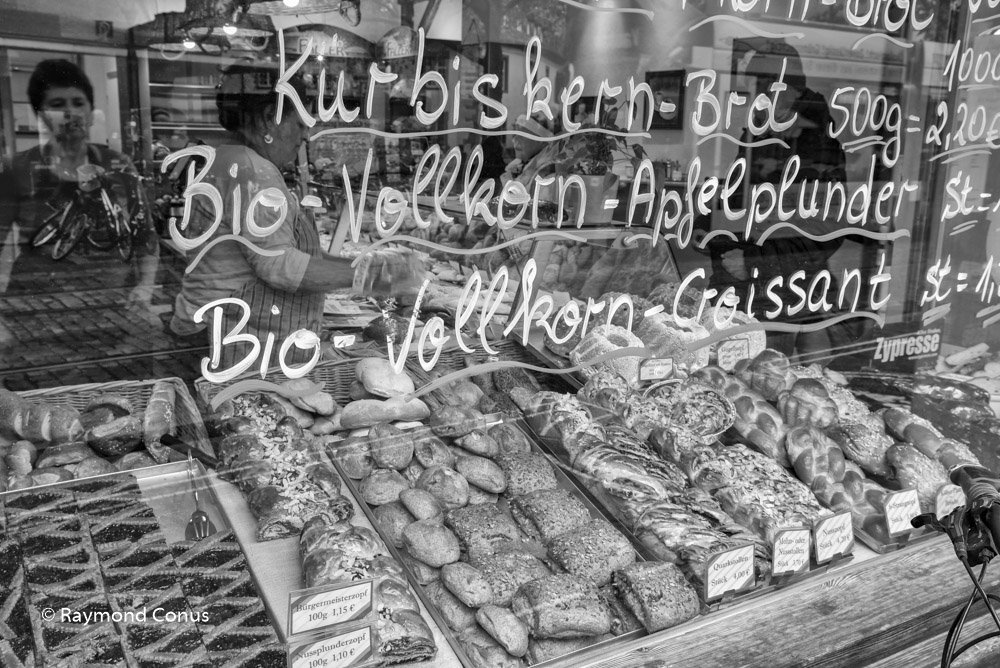 Korn-Brot
1000
Kürbiskern-Brot 500g = 2,20€
Bio-Vollkorn-Apfelplunder St =
Bio-Vollkorn-Croissant St = 1,
Zypresse
Quarkstollen
Stück 4,00 €
Mohn- oder
Nussstollen
Bürgermeisterzopf
100g 1,15 €
Nussplunderzopf
100g 1,10 €
© Raymond Conus